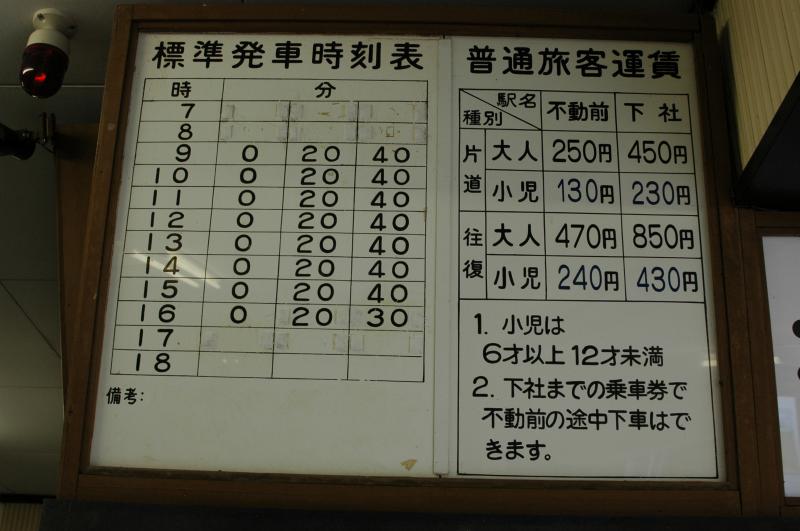 標準発車時刻表
時 分
7
8
9 0 20 40
10 0 20 40
11 0 20 40
12 0 20 40
13 0 20 40
14 0 20 40
15 0 20 40
16 0 20 30
17
18
備考:
普通旅客運賃
駅名 種別 不動前 下社
片道 大人 250円 450円
小児 130円 230円
往復 大人 470円 850円
小児 240円 430円
1. 小児は
6才以上12才未満
2. 下社までの乗車券で
不動前の途中下車はで
きます。